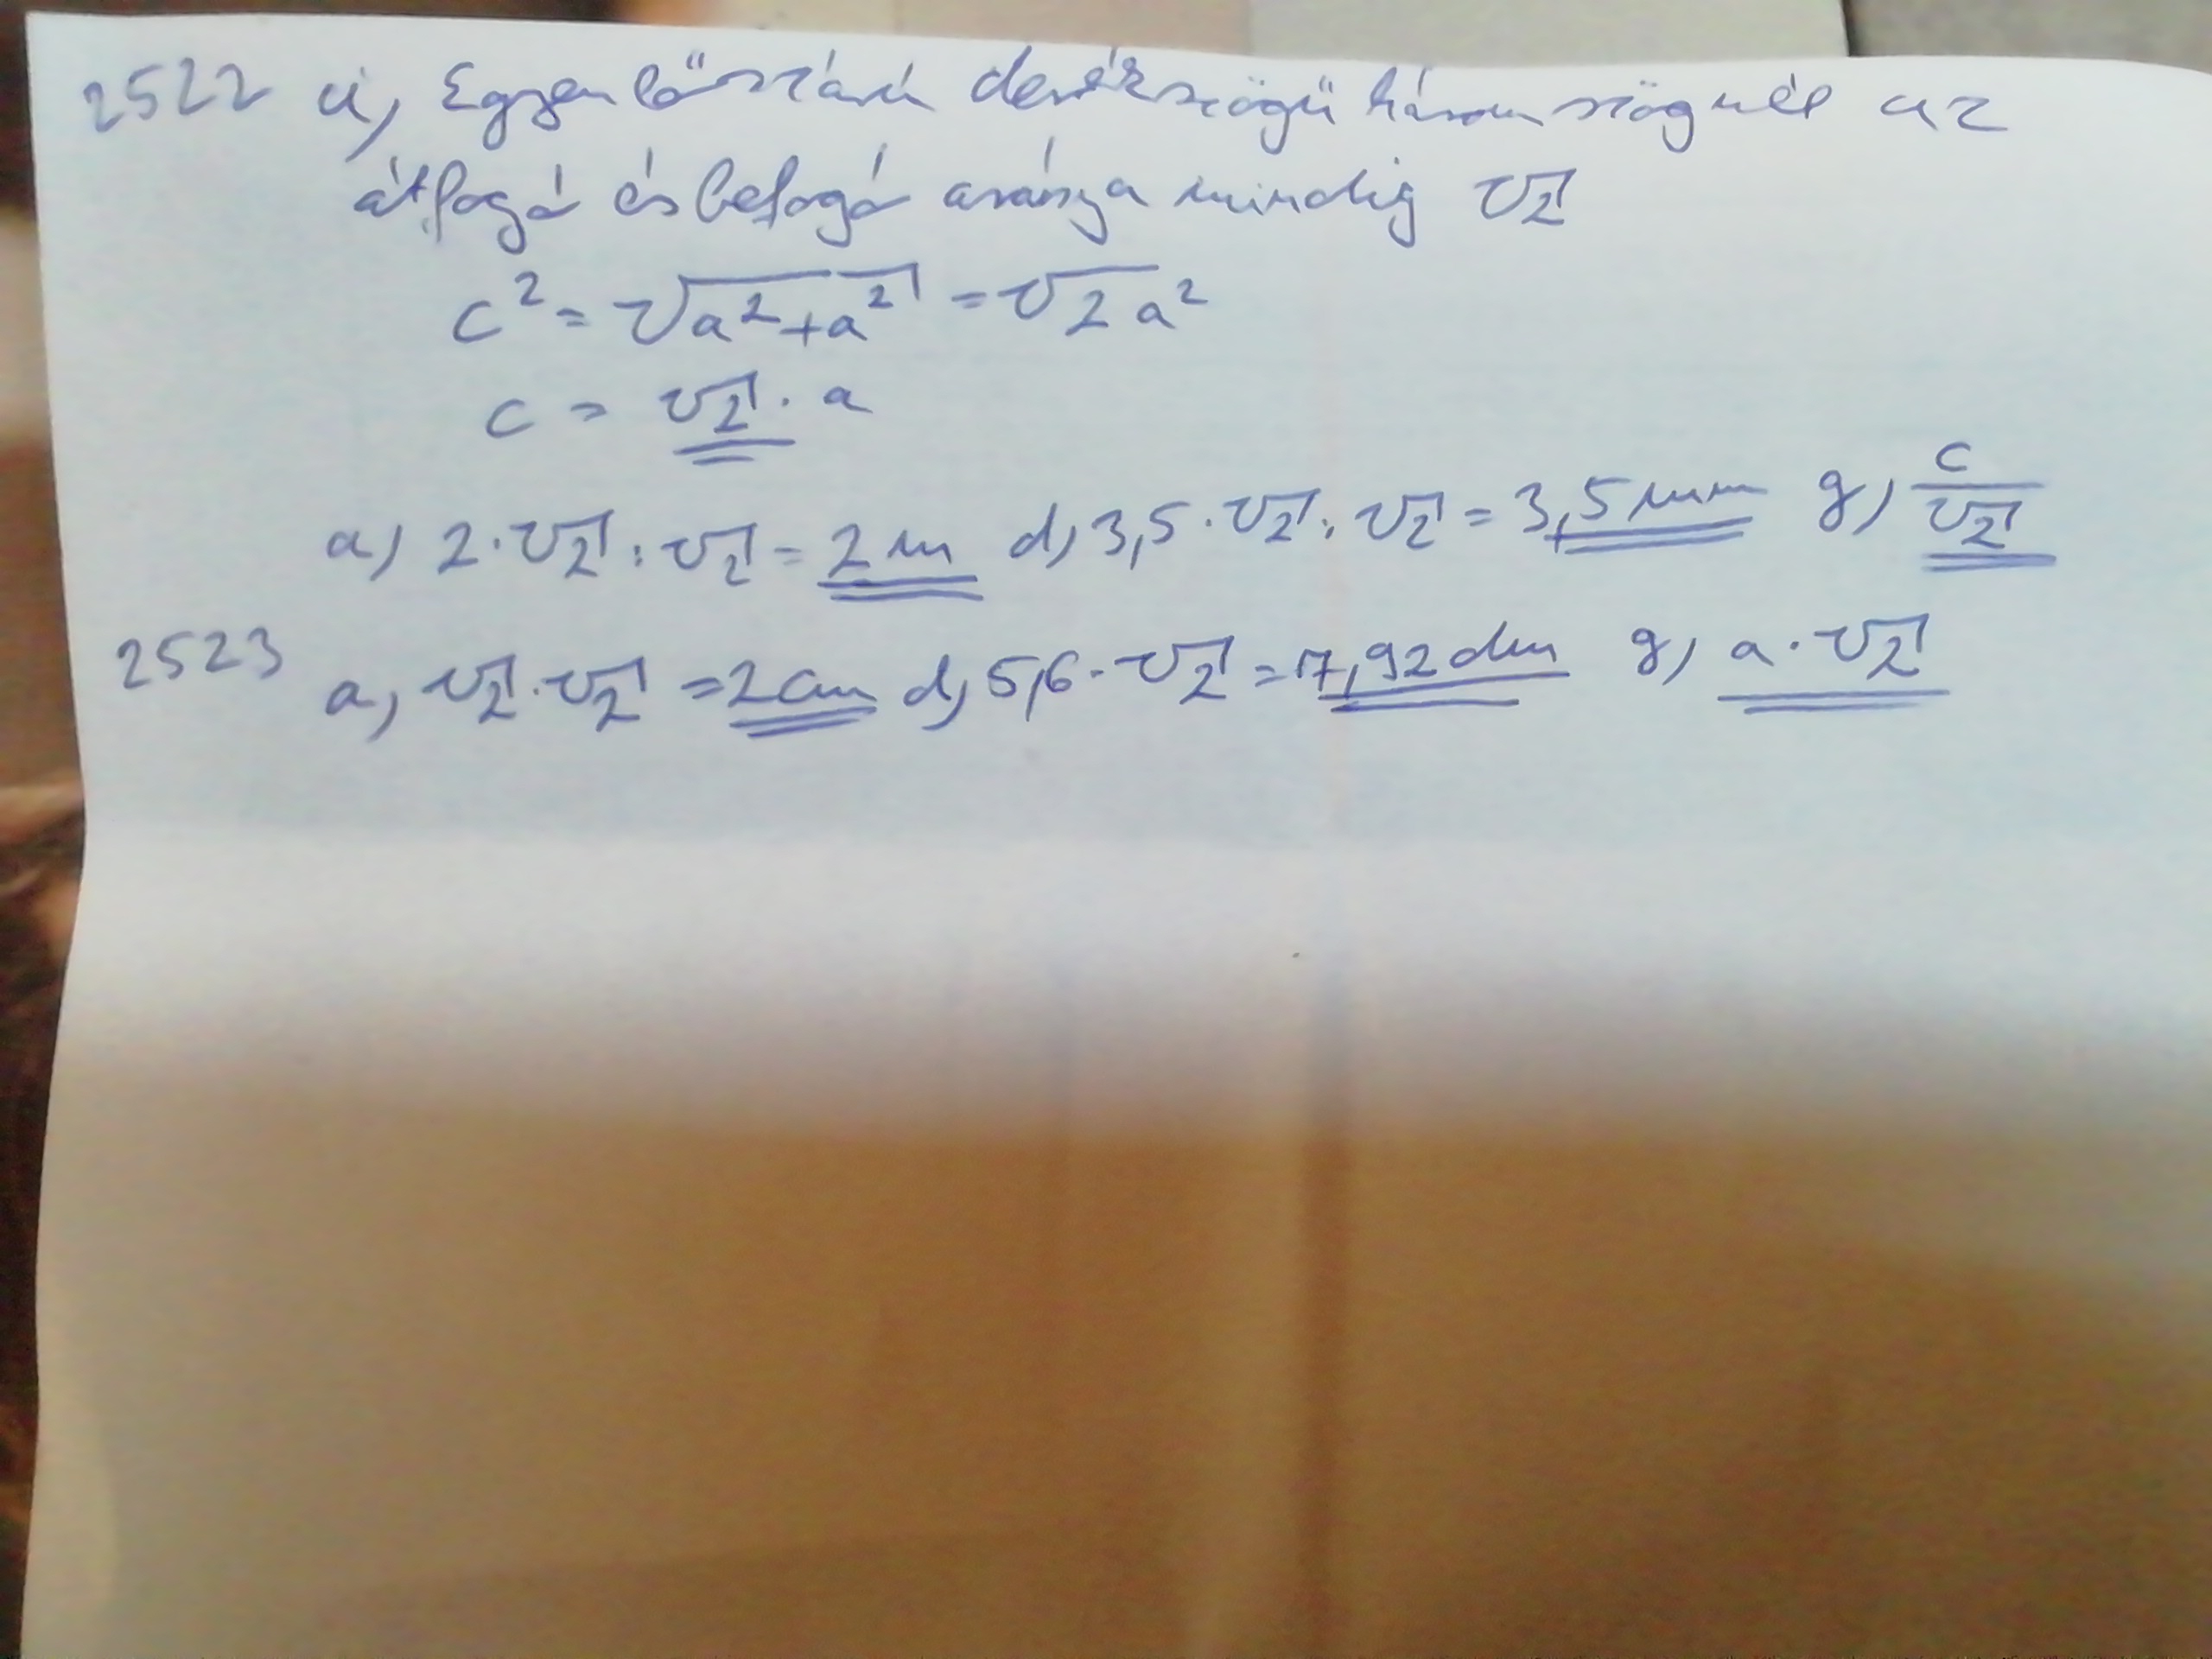 2522 a, Egyenlőszárú derékszögű háromszögnél az
átfogó és befogó aránya mindig √2
c² = √a²+a² = √2a²
c = √2 · a
a) 2·√2 : √2 = 2 m d) 3,5·√2 : √2 = 3,5 mm g) c/√2
2523 a, √2·√2 = 2 cm d) 5,6·√2 = 7,92 dm g) a·√2